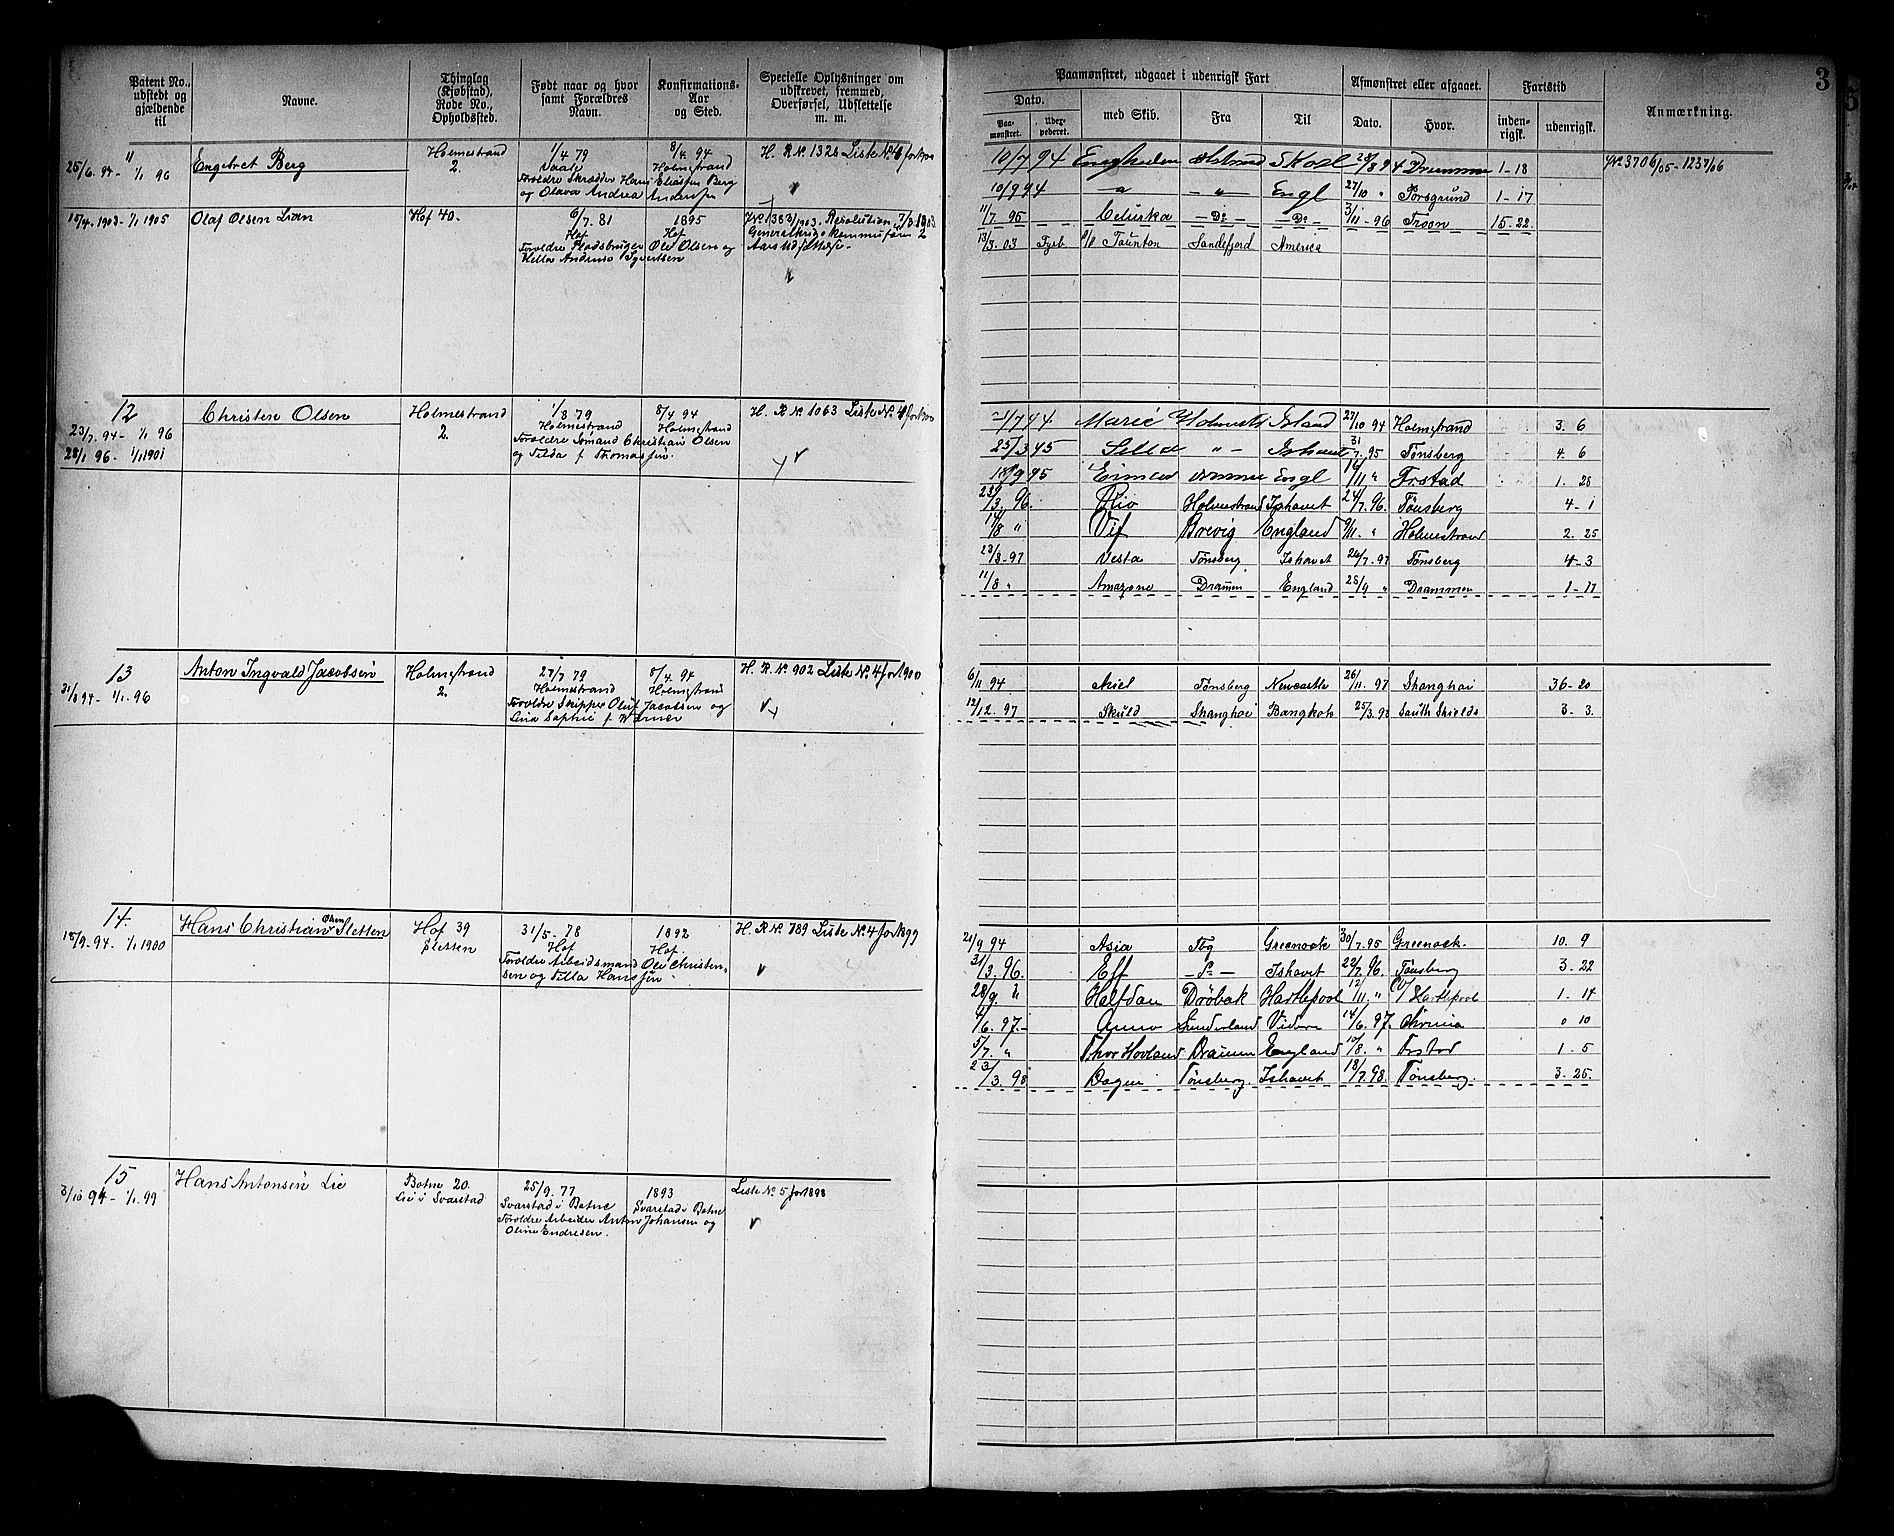 3
Patent No., udstedt og gjældende til
Navne.
Thinglag (Kjøbstad), Rode No., Opholdssted.
Født naar og hvor samt Forældres Navn.
Konfirmations-Aar og Sted.
Specielle Oplysninger om udskrevet, fremmed, Overførsel, Udslettelse m. m.
Paamønstret, udgaaet i udenrigsk Fart
Dato.
Paamønstret.
med Skib.
Fra
Til
Afmønstret eller afgaaet.
Dato.
Hvor.
Fartstid
inden-rigsk.
udenrigsk.
Anmærkning.
11
25/6. 94 - 1/1 96
Engebret Berg
Holmestrand
2.
1/4 79
8/4. 94
Holmestrand
Forældre Skrædder Hans Eliassen Berg
og Olava Andrea Andersen
H. R No 1328 Liste No 4 for 1900
10/7 94 Holmestrand 28/8 94 Drammen 1-18
10/9 94 - " - Engl 27/10 " Porsgrund 1-17
11/7 95 - Do - - Do - 3/11 - 96 Troon 15-22
13/3. 03 Taunton Sandefjord America
10/4. 1903 - 1/1 1905
Olaf Olsen Lian
Hof 40.
6/7. 81
Hof
1895
Hof
Forældre Pladsbruger Ole Olsen og
Andrine Syvertsen
12
23/7. 94 - 1/1 96
28/1 96. - 1/1 1901
Christen Olsen
Holmestrand
2.
1/8 79
Holmestrand
8/4 94
Holmestrand
Forældre Sømand Christian Olsen
og Tilda f Thomassen
H. R. No. 1063 Liste No. 4 for 1900
Marie 27/10 94 Holmestrand 3. 6
25/3 95 " - Ishavet 31/7. 95 Tønsberg 4. 6
18/9 95 Engl 16/11 " 1. 28
Holmestrand Ishavet 24/7. 96. Tønsberg 4-1
14/8 " Vif Brevig England 9/11. " Holmestrand 2. 25
23/3-97 Vesta Tønsberg Ishavet 26/7. 97 Tønsberg 4-3
11/8 " Amazone Drammen England 28/9 " Drammen 1-17
13
31/8 94 - 1/1. 96
Anton Ingvald Jacobsen
Holmestrand
2.
27/7 79
Holmestrand
8/4. 94
Holmestrand
Forældre Skipper Oluf Jacobsen og
Lina Sophie f Werner
H. R. No. 902 Liste No. 4 for 1900
6/11 94 Tønsberg Newcastle 26/11. 97 Shanghai 36-20
12/12. 97 Skuld Shanghai Bangkok 25/3. 98 South Shields 3-3.
14
18/9. 94. - 1/1. 1900
Hans Christian Olsen Sletten
Hof 39
Sletten
31/5 - 78
Hof
1892
Hof
Forældre Arbeidsmand Ole Christen-
sen og Tilla Hanssen
H. R No. 789 Liste No. 4 for 1899
21/9 94 Asia Tbg Greenock 30/7. 95 Greenock. 10. 9
31/3. 96. Elf - Do - Ishavet 22/7. 96. Tønsberg 3-22
28/9. " Halfdan Drøbak Hartlepool 12/11, " Hartlepool 1-14
/6. 97. - Anna Sunderland 14/6. 97. 0 10
5/7. " Thor Hovland Drammen England 10/8. " 1-5
23/3. 98 Tønsberg. Ishavet 18/7. 98 Tønsberg. 3-25.
15
3/10 94 - 1/1. 99
Hans Antonsen Lie
Botne 20.
Lie i Svarstad
25/9. 77
Svarstad i Botne
1893
Svarstad i Botne
Forældre Arbeider Anton Johansen og
Oline Endresen.
Liste No. 5 for 1898